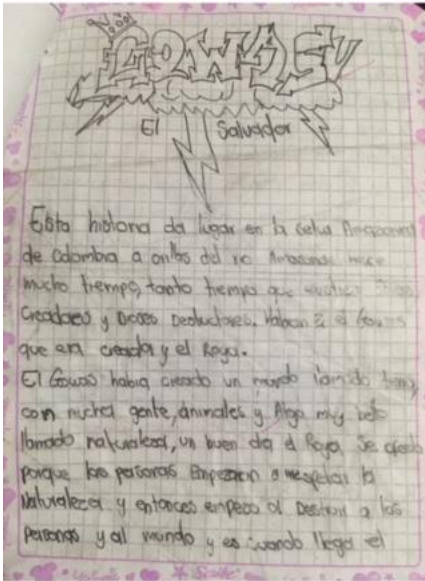 GOWAS
El Salvador
Esta historia da lugar en la selva Amazonas
de Colombia a orillas del rio Amazonas hace
mucho tiempo, tanto tiempo que
Creadores y Dioses Destructores. Habian 2 el Gowas
que era creador y el Roya.
El Gowas habia creado un mundo llamado
con mucha gente, animales y Algo muy bello
llamado naturaleza, un buen dia el Roya, Se
porque las personas Empezaron a irrespetar la
Naturaleza y entonces empezo a Destruir a las
personas y al mundo y es cuando llega el